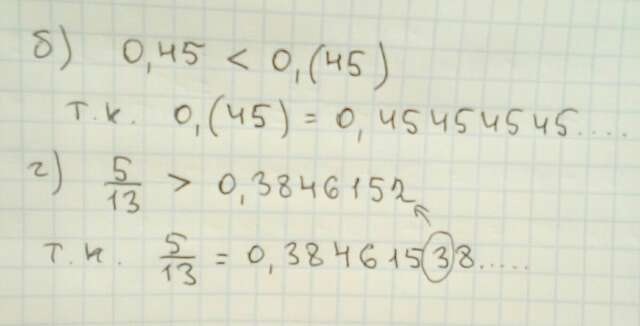 б) 0,45 < 0,(45)
т.к. 0,(45) = 0,45454545....
г) 5/13 > 0,3846152
т.к. 5/13 = 0,38461538.....